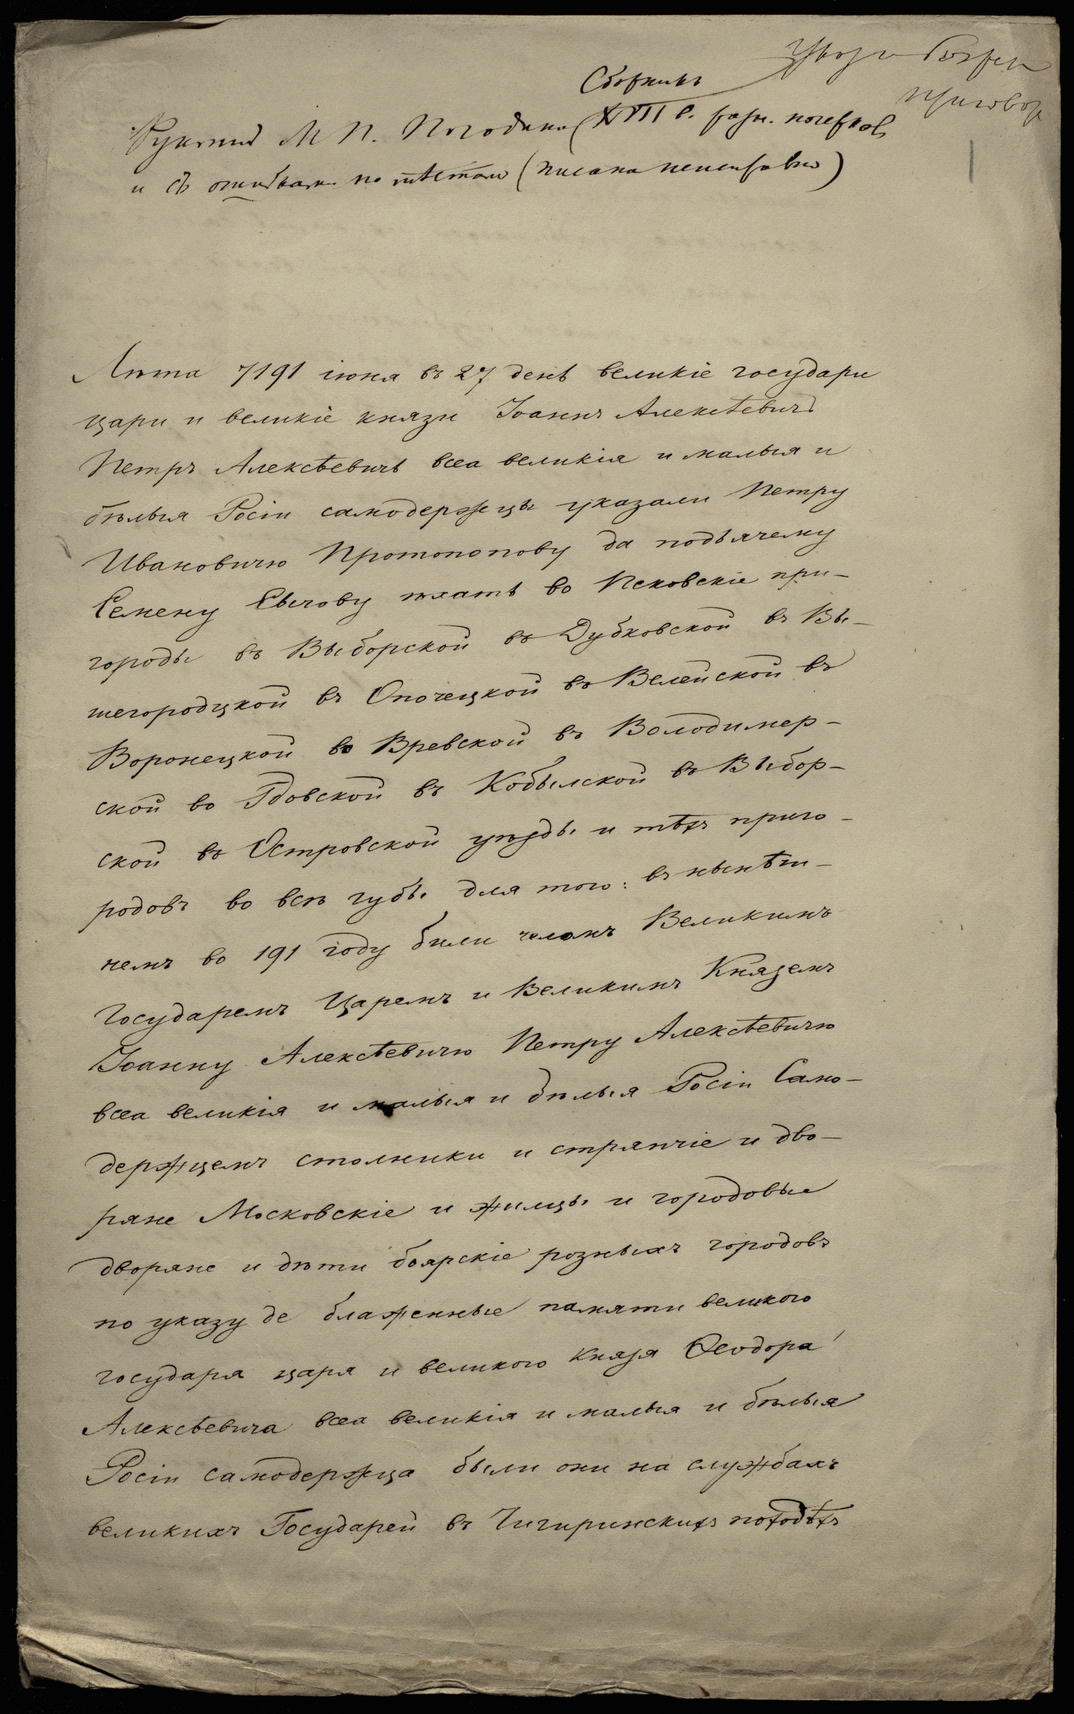 указ и боярск
приговор
Сборникъ
Рукопись М. П. Погодина (XVII в. разн. почерков
и съ ошибками по мѣстамъ (писана неисправно)
Лѣта 7191 іюня въ 27 день великіе государи
цари и великіе князи Іоаннъ Алексѣевичъ
Петръ Алексѣевичь всеа великія и малыя и
бѣлыя Росіи самодержцы указали Петру
Ивановичю Протопопову да подьячему
Семену Сычову ѣхать во Псковскіе при-
городы въ Выборской въ Дубковской въ Вы-
шегородцкой въ Опочецкой въ Велейской въ
Воронецкой во Вревской въ Володимер-
ской во Гдовской въ Кобылской въ Выбор-
ской въ Островской уѣзды и тѣхъ приго-
родовъ во всѣ губы для того: въ нынѣш-
немъ во 191 году били челомъ Великимъ
Государемъ Царемъ и Великимъ Княземъ
Іоанну Алексѣевичю Петру Алексѣевичю
всеа великія и малыя и бѣлыя Росіи Само-
держцемъ столники и стряпчіе и дво-
ряне Московскіе и жилцы и городовые
дворяне и дѣти боярскіе розныхъ городовъ
по указу де блаженные памяти великого
государя царя и великого князя Ѳеодора
Алексѣевича всеа великія и малыя и бѣлыя
Росіи самодержца были они на службахъ
великихъ Государей въ Чигиринскихъ походѣхъ